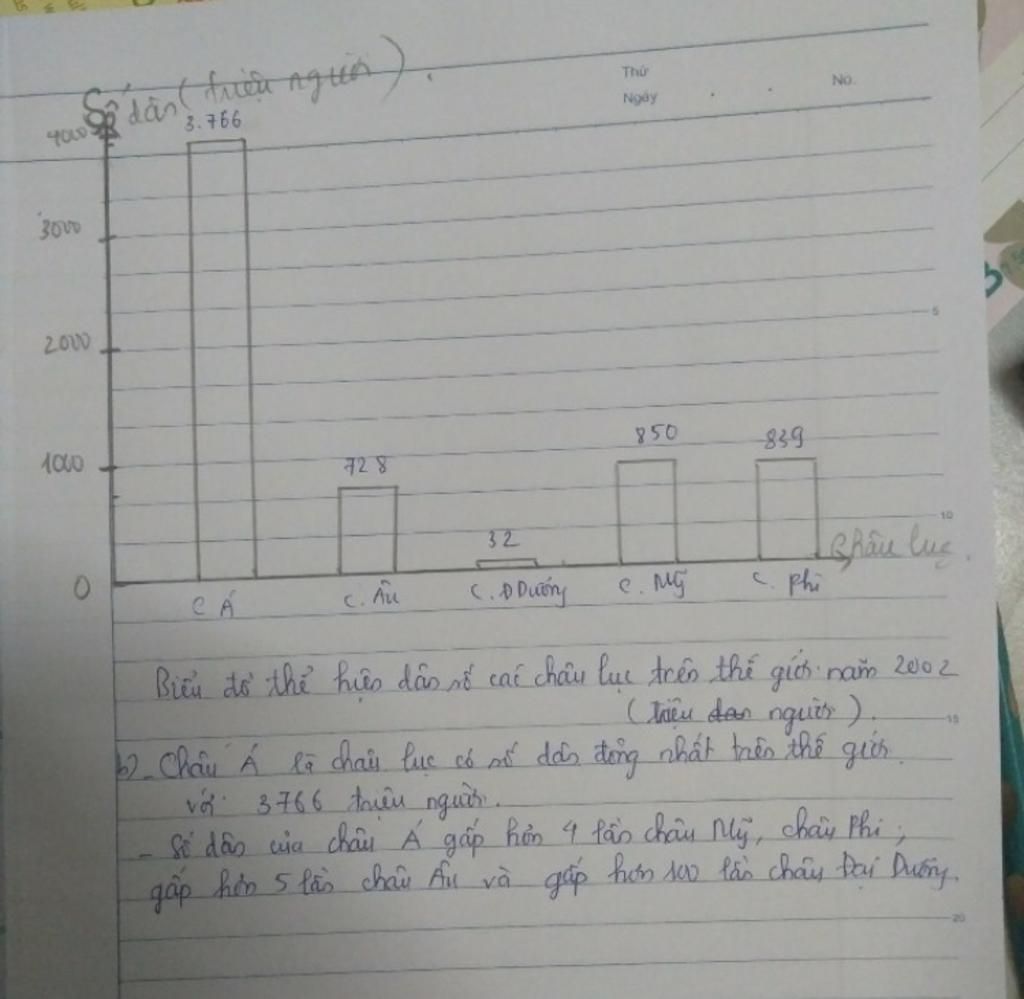 Số dân (triệu người).
Thứ
Ngày
No.
4000
3.766
3000
2000
5
1000
728
32
850
839
10
Châu lục.
0
C Á
C. Âu
C. Đ Dương
C. Mỹ
C. Phi
Biểu đồ thể hiện dân số các châu lục trên thế giới năm 2002
(triệu dan người).
15
b) - Châu Á là châu lục có số dân đông nhất trên thế giới
với 3766 triệu người.
- Số dân của châu Á gấp hơn 4 lần châu Mỹ, châu Phi;
gấp hơn 5 lần châu Âu và gấp hơn 100 lần châu Đại Dương.
20